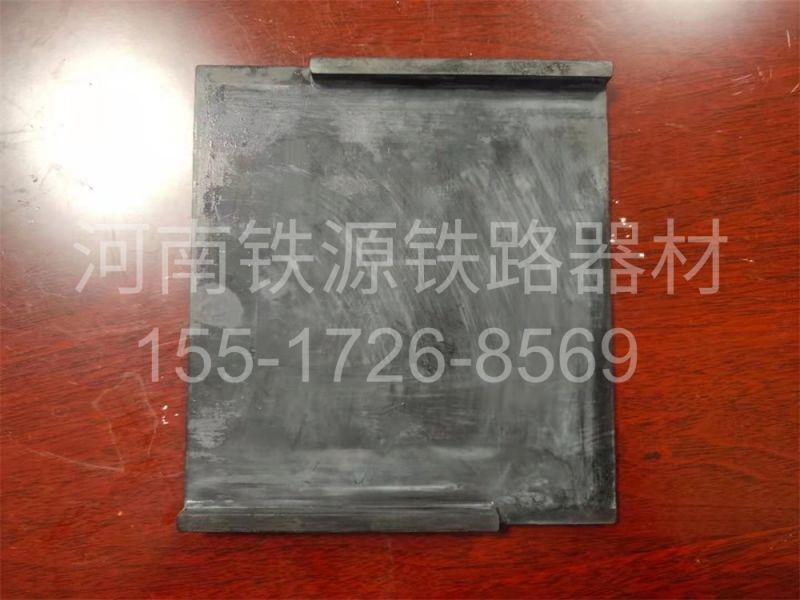 河南铁源铁路器材
155-1726-8569